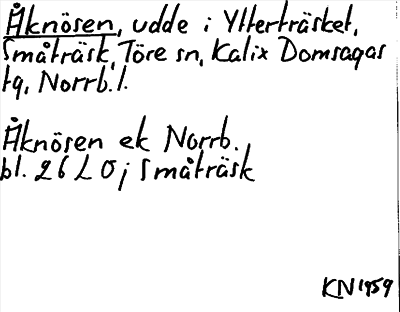 Åknösen, udde i Ytterträsket,
Småträsk, Töre sn, Kalix Domsagas
tg, Norrb. l.
Åknösen ek Norrb.
bl. 26 L 0j Småträsk
KN 1959